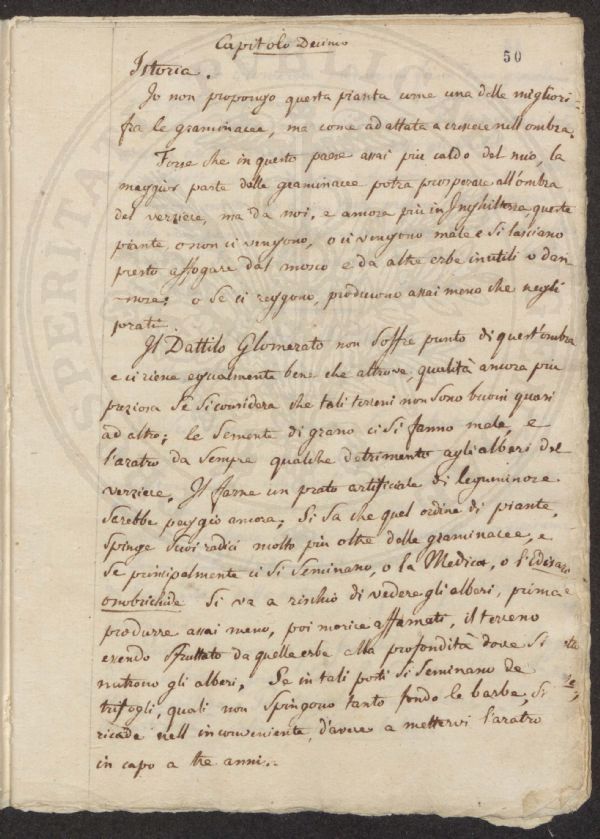 Capitolo Decimo
50
Istoria.
Io non propongo questa pianta come una delle migliori
fra le graminacee, ma come adattata a crescere nell'ombra.
Forse che in questo paese assai più caldo del mio, la
maggior parte delle graminacee potra prosperare all'ombra
del verziere, ma da noi, e ancora più in Inghilterra, queste
piante, o non ci vengono, o ci vengono male e si lasciano
presto affogare dal mosco e da altre erbe inutili o dan
nose; o se ci reggono, producono assai meno che negli
prati.
Il Dattilo Glomerato non soffre punto di quest'ombra
e ci viene egualmente bene che altrove, qualità ancora più
preziosa se si considera che tali terreni non sono buoni quasi
ad altro; le semente di grano ci si fanno male, e
l'aratro da sempre qualche detrimento agli alberi del
verziere. Il farne un prato artificiale di leguminose
sarebbe peggio ancora; Si sa che quel ordine di piante,
spinge suoi radici molto più oltre delle graminacee, e
se principalmente ci si seminano, o la Medica, o l'Edisaro
onobrichide si va a rischio di vedere gli alberi, prima
produrre assai meno, poi morire affamati, il terreno
essendo sfruttato da quelle erbe alla profondità dove si
nutrono gli alberi. Se in tali posti si seminano de
trifogli, quali non spingono tanto fondo le barbe, si
ricade nell inconveniente, d'avere a mettervi l'aratro
in capo a tre anni..